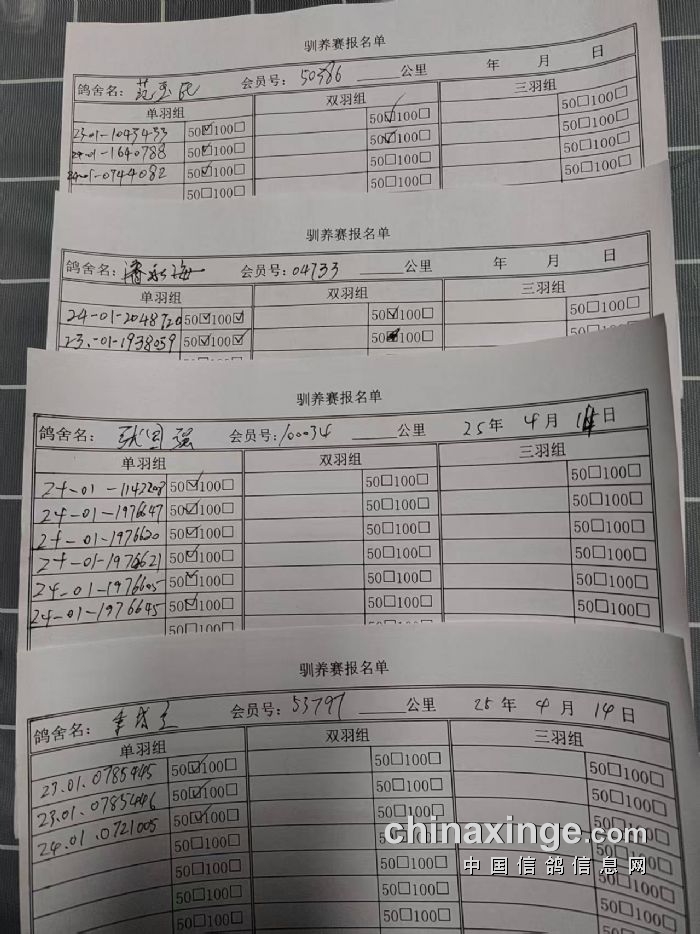 驯养赛报名单
鸽舍名： 会员号：50386 公里 年 月 日
单羽组 双羽组 三羽组
23-01-1043433 50☑100☐ 50☑100☐ 50☐100☐
24-01-1640788 50☑100☐ 50☑100☐ 50☐100☐
24-01-0744082 50☑100☐ 50☐100☐ 50☐100☐
50☐100☐ 50☐100☐ 50☐100☐
驯养赛报名单
鸽舍名：潘永海 会员号：04733 公里 年 月 日
单羽组 双羽组 三羽组
24-01-2048720 50☑100☑ 50☑100☐ 50☐100☐
23-01-1938059 50☑100☑ 50☑100☐ 50☐100☐
驯养赛报名单
鸽舍名：张国强 会员号：100034 公里 25年 4月 日
单羽组 双羽组 三羽组
24-01-1142208 50☑100☐ 50☐100☐ 50☐100☐
24-01-1976647 50☑100☐ 50☐100☐ 50☐100☐
24-01-1976620 50☑100☐ 50☐100☐ 50☐100☐
24-01-1976621 50☑100☐ 50☐100☐ 50☐100☐
24-01-1976605 50☑100☐ 50☐100☐ 50☐100☐
24-01-1976645 50☑100☐ 50☐100☐ 50☐100☐
50☐100☐ 50☐100☐ 50☐100☐
驯养赛报名单
鸽舍名： 会员号：53797 公里 25年 4月 14日
单羽组 双羽组 三羽组
23.01.0785445 50☑100☐ 50☐100☐ 50☐100☐
23.01.0785446 50☑100☐ 50☐100☐ 50☐100☐
24.01.0721005 50☑100☐ 50☐100☐ 50☐100☐
50☐100☐ 50☐100☐ 50☐100☐
50☐100☐ 50☐100☐ 50☐100☐
50☐100☐ 50☐100☐ 50☐100☐
50☐100☐ 50☐100☐ 50☐100☐
chinaxinge.com
中国信鸽信息网